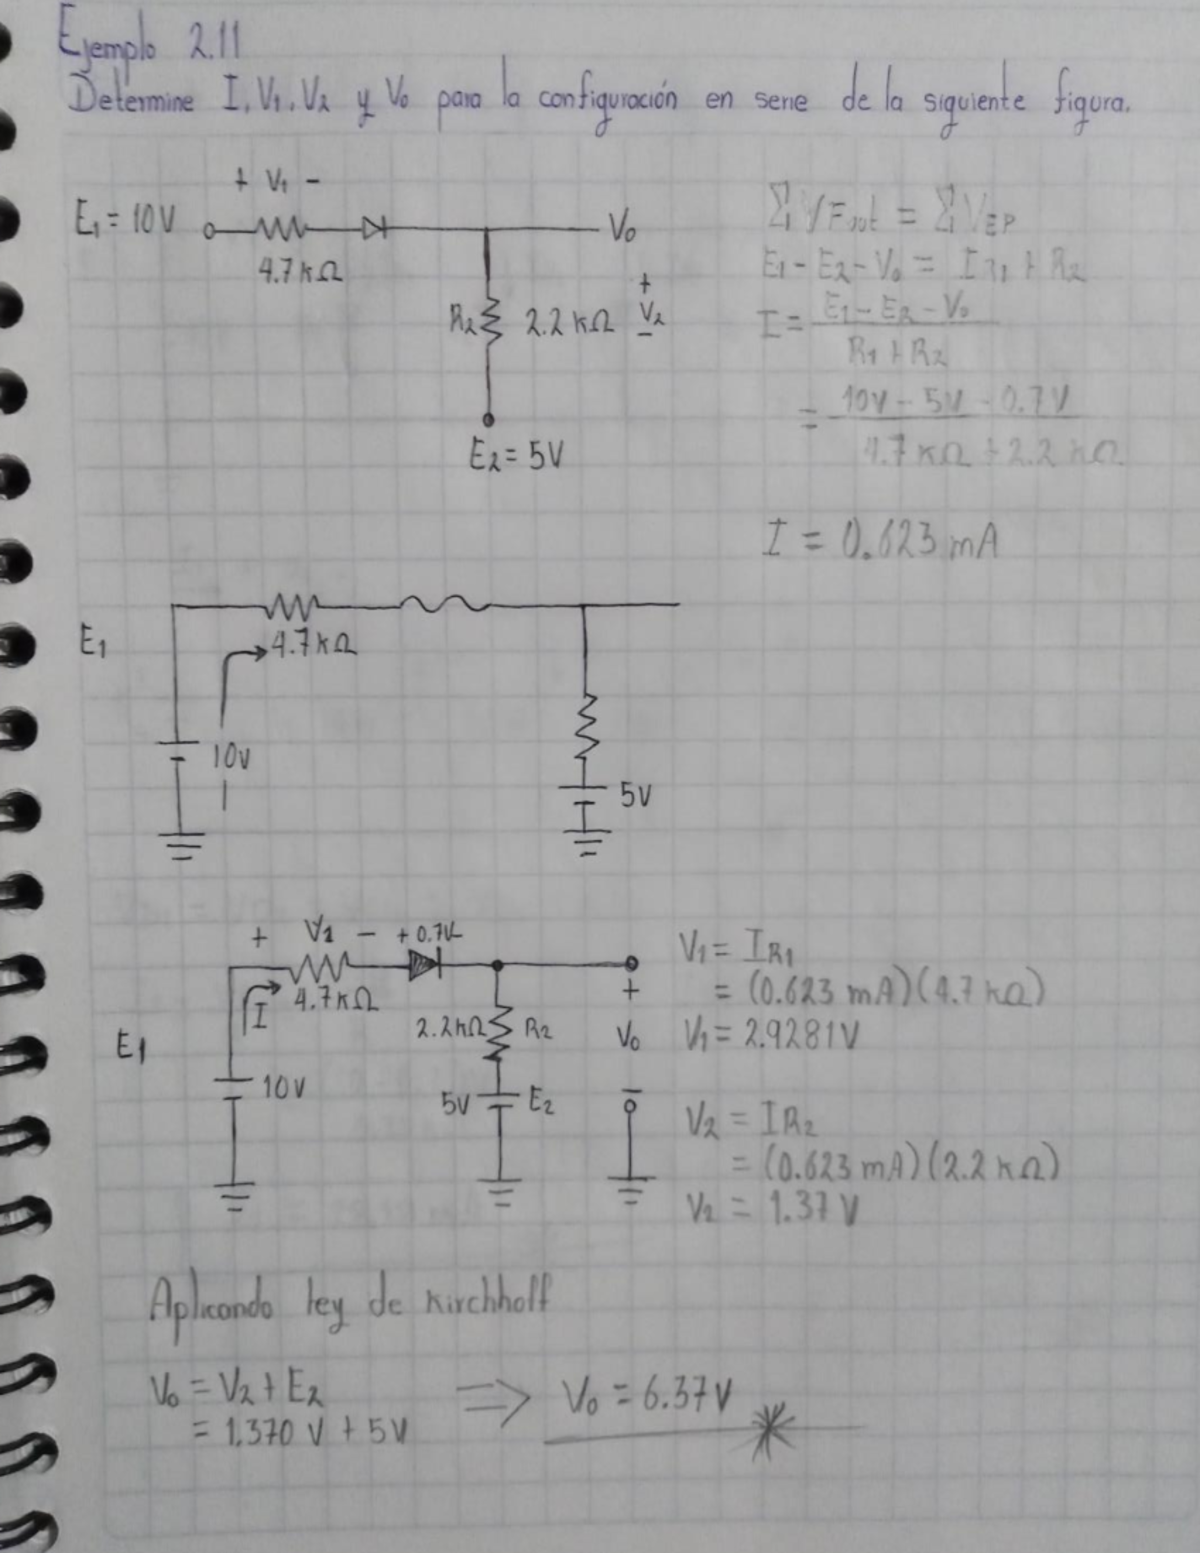 Ejemplo 2.11
Determine I, V₁, V₂ y V₀ para la configuración en serie de la siguiente figura.
+ V₁ -
E₁ = 10V
4.7 kΩ
V₀
R₂ 2.2 kΩ
+
V₂
-
E₂ = 5V
E₁ - E₂ - V₀ = I R₁ + R₂
I = E₁ - E₂ - V₀
R₁ + R₂
= 10V - 5V - 0.7V
4.7 kΩ + 2.2 kΩ
I = 0.623 mA
E₁
4.7 kΩ
10V
5V
+ V₁ - + 0.7V -
4.7 kΩ
I
E₁
10V
2.2 kΩ R₂
5V E₂
+
V₀
-
V₁ = I R₁
= (0.623 mA)(4.7 kΩ)
V₁ = 2.9281V
V₂ = I R₂
= (0.623 mA)(2.2 kΩ)
V₂ = 1.37 V
Aplicando ley de Kirchhoff
V₀ = V₂ + E₂ ⇒ V₀ = 6.37V
= 1.370 V + 5V